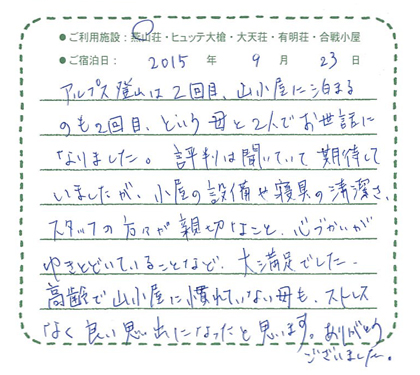 ●ご利用施設：燕山荘・ヒュッテ大槍・大天荘・有明荘・合戦小屋
●ご宿泊日： 2015 年 9 月 23 日
アルプス登山は2回目、山小屋に泊まる
のも2回目、という母と2人でお世話に
なりました。評判は聞いていて期待して
いましたが、小屋の設備や寝具の清潔さ、
スタッフの方々が親切なこと、心づかいが
ゆきとどいていることなど、大満足でした。
高齢で山小屋に慣れていない母も、ストレス
なく良い思い出になったと思います。ありがとう
ございました。